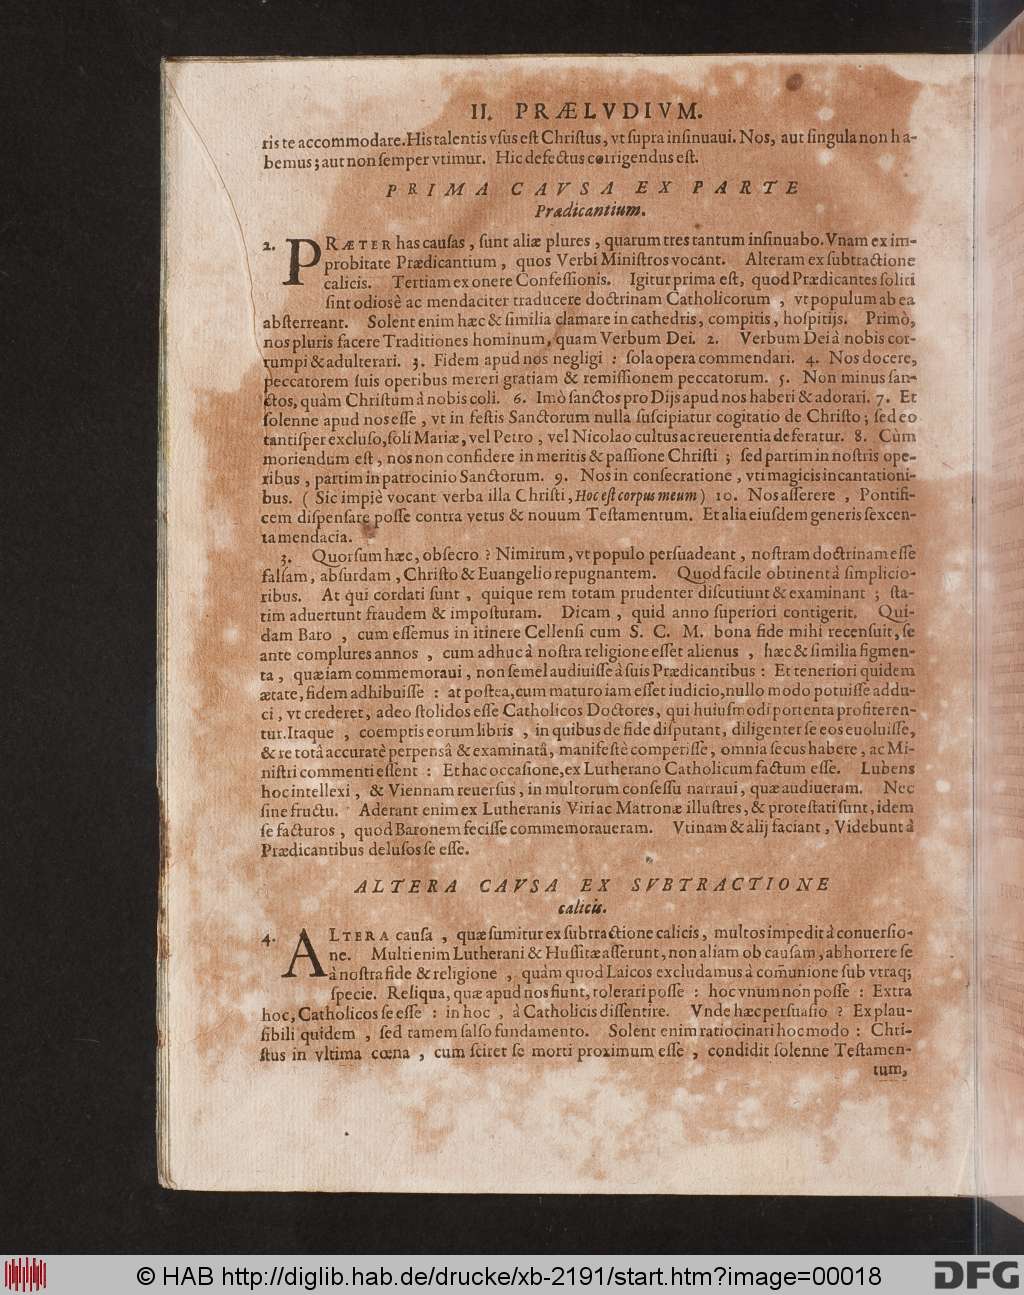 II. PRÆLVDIVM.
ris te accommodare. His talentis vsus est Christus, vt supra insinuaui. Nos, aut singula non ha-
bemus; aut non semper vtimur. Hic defectus corrigendus est.
PRIMA CAVSA EX PARTE
Prædicantium.
2. PRÆTER has causas, sunt aliæ plures, quarum tres tantum insinuabo. Vnam ex im-
probitate Prædicantium, quos Verbi Ministros vocant. Alteram ex subtractione
calicis. Tertiam ex onere Confessionis. Igitur prima est, quod Prædicantes soliti
sint odiosè ac mendaciter traducere doctrinam Catholicorum, vt populum ab ea
absterreant. Solent enim hæc & similia clamare in cathedris, compitis, hospitijs. Primò,
nos pluris facere Traditiones hominum, quam Verbum Dei. 2. Verbum Dei à nobis cor-
rumpi & adulterari. 3. Fidem apud nos negligi: sola opera commendari. 4. Nos docere,
peccatorem suis operibus mereri gratiam & remissionem peccatorum. 5. Non minus san-
ctos, quàm Christum à nobis coli. 6. Imò sanctos pro Dijs apud nos haberi & adorari. 7. Et
solenne apud nos esse, vt in festis Sanctorum nulla suscipiatur cogitatio de Christo; sed eo
tantisper excluso, soli Mariæ, vel Petro, vel Nicolao cultus ac reuerentia deferatur. 8. Cùm
moriendum est, nos non confidere in meritis & passione Christi; sed partim in nostris ope-
ribus, partim in patrocinio Sanctorum. 9. Nos in consecratione, vti magicis incantationi-
bus. (Sic impiè vocant verba illa Christi, Hoc est corpus meum) 10. Nos asserere, Pontifi-
cem dispensare posse contra vetus & nouum Testamentum. Et alia eiusdem generis sexcen-
ta mendacia.
3. Quorsum hæc, obsecro? Nimirum, vt populo persuadeant, nostram doctrinam esse
falsam, absurdam, Christo & Euangelio repugnantem. Quod facile obtinent à simplicio-
ribus. At qui cordati sunt, quique rem totam prudenter discutiunt & examinant; sta-
tim aduertunt fraudem & imposturam. Dicam, quid anno superiori contigerit. Qui-
dam Baro, cum essemus in itinere Cellensi cum S. C. M. bona fide mihi recensuit, se
ante complures annos, cum adhuc à nostra religione esset alienus, hæc & similia figmen-
ta, quæ iam commemoraui, non semel audiuisse à suis Prædicantibus: Et teneriori quidem
ætate, fidem adhibuisse: at postea, cum maturo iam esset iudicio, nullo modo potuisse addu-
ci, vt crederet, adeo stolidos esse Catholicos Doctores, qui huiusmodi portenta profiteren-
tur. Itaque, coemptis eorum libris, in quibus de fide disputant, diligenter se eos euoluisse,
& re totâ accuratè perpensâ & examinatâ, manifestè comperisse, omnia secus habere, ac Mi-
nistri commenti essent: Et hac occasione, ex Lutherano Catholicum factum esse. Lubens
hoc intellexi, & Viennam reuersus, in multorum consessu narraui, quæ audiueram. Nec
sine fructu. Aderant enim ex Lutheranis Viri ac Matronæ illustres, & protestati sunt, idem
se facturos, quod Baronem fecisse commemoraueram. Vtinam & alij faciant, Videbunt à
Prædicantibus delusos se esse.
ALTERA CAVSA EX SVBTRACTIONE
calicis.
4. ALTERA causa, quæ sumitur ex subtractione calicis, multos impedit à conuersio-
ne. Multi enim Lutherani & Hussitæ asserunt, non aliam ob causam, abhorrere se
à nostra fide & religione, quàm quod Laicos excludamus à com̃unione sub vtraq;
specie. Reliqua, quæ apud nos fiunt, tolerari posse: hoc vnum non posse: Extra
hoc, Catholicos se esse: in hoc, à Catholicis dissentire. Vnde hæc persuasio? Ex plau-
sibili quidem, sed tamem falso fundamento. Solent enim ratiocinari hoc modo: Chri-
stus in vltima cœna, cum sciret se morti proximum esse, condidit solenne Testamen-
tum,
© HAB http://diglib.hab.de/drucke/xb-2191/start.htm?image=00018
DFG